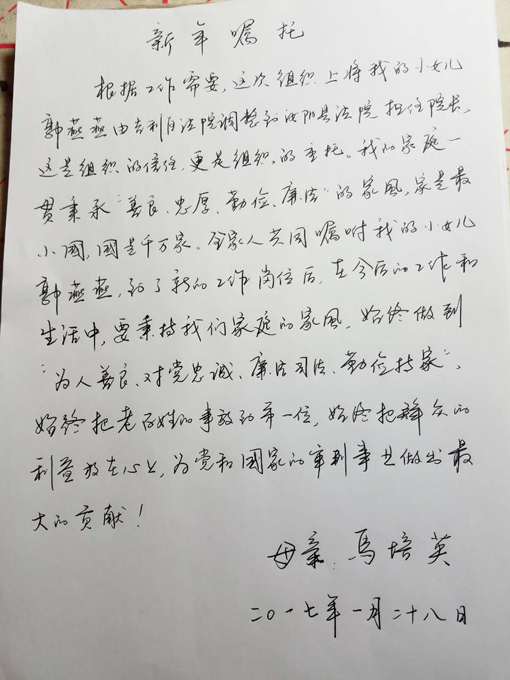 新年嘱托
根据工作需要,这次组织上将我的小女儿
郭燕燕由吉利区法院调整到汝阳县法院担任院长,
这是组织的信任,更是组织的重托。我的家庭一
贯秉承“善良、忠厚、勤俭、廉洁”的家风,家是最
小国,国是千万家。全家人共同嘱咐我的小女儿
郭燕燕,到了新的工作岗位后,在今后的工作和
生活中,要秉持我们家庭的家风,始终做到
“为人善良、对党忠诚、廉洁司法、勤俭持家”,
始终把老百姓的事放到第一位,始终把群众的
利益放在心上,为党和国家的审判事业做出最
大的贡献!
母亲:马培英
二〇一七年一月二十八日